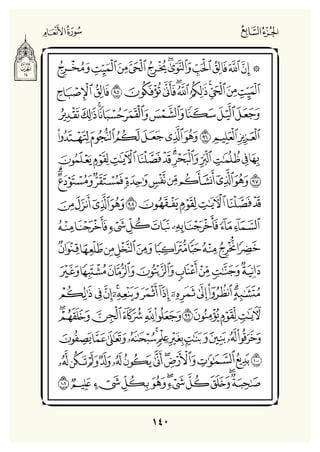 الجُزْءُ السَّابِعُ
سُورَةُ الأَنْعَامِ
۞ إِنَّ ٱللَّهَ فَالِقُ ٱلْحَبِّ وَٱلنَّوَىٰۖ يُخْرِجُ ٱلْحَيَّ مِنَ ٱلْمَيِّتِ وَمُخْرِجُ
ٱلْمَيِّتِ مِنَ ٱلْحَيِّۚ ذَٰلِكُمُ ٱللَّهُۖ فَأَنَّىٰ تُؤْفَكُونَ ٩٥ فَالِقُ ٱلْإِصْبَاحِ
وَجَعَلَ ٱلَّيْلَ سَكَنًا وَٱلشَّمْسَ وَٱلْقَمَرَ حُسْبَانًاۚ ذَٰلِكَ تَقْدِيرُ
ٱلْعَزِيزِ ٱلْعَلِيمِ ٩٦ وَهُوَ ٱلَّذِي جَعَلَ لَكُمُ ٱلنُّجُومَ لِتَهْتَدُوا۟
بِهَا فِي ظُلُمَٰتِ ٱلْبَرِّ وَٱلْبَحْرِۗ قَدْ فَصَّلْنَا ٱلْءَايَٰتِ لِقَوْمٍ يَعْلَمُونَ
٩٧ وَهُوَ ٱلَّذِيٓ أَنشَأَكُم مِّن نَّفْسٍ وَٰحِدَةٍ فَمُسْتَقَرٌّ وَمُسْتَوْدَعٌۗ
قَدْ فَصَّلْنَا ٱلْءَايَٰتِ لِقَوْمٍ يَفْقَهُونَ ٩٨ وَهُوَ ٱلَّذِيٓ أَنزَلَ مِنَ
ٱلسَّمَآءِ مَآءً فَأَخْرَجْنَا بِهِۦ نَبَاتَ كُلِّ شَيْءٍ فَأَخْرَجْنَا مِنْهُ
خَضِرًا نُّخْرِجُ مِنْهُ حَبًّا مُّتَرَاكِبًا وَمِنَ ٱلنَّخْلِ مِن طَلْعِهَا قِنْوَانٌ
دَانِيَةٌ وَجَنَّٰتٍ مِّنْ أَعْنَابٍ وَٱلزَّيْتُونَ وَٱلرُّمَّانَ مُشْتَبِهًا وَغَيْرَ
مُتَشَٰبِهٍۗ ٱنظُرُوٓا۟ إِلَىٰ ثَمَرِهِۦٓ إِذَآ أَثْمَرَ وَيَنْعِهِۦٓۚ إِنَّ فِي ذَٰلِكُمْ
لَءَايَٰتٍ لِّقَوْمٍ يُؤْمِنُونَ ٩٩ وَجَعَلُوا۟ لِلَّهِ شُرَكَآءَ ٱلْجِنَّ وَخَلَقَهُمْۖ
وَخَرَقُوا۟ لَهُۥ بَنِينَ وَبَنَٰتٍۭ بِغَيْرِ عِلْمٍۚ سُبْحَٰنَهُۥ وَتَعَٰلَىٰ عَمَّا يَصِفُونَ
١٠٠ بَدِيعُ ٱلسَّمَٰوَٰتِ وَٱلْأَرْضِۖ أَنَّىٰ يَكُونُ لَهُۥ وَلَدٌ وَلَمْ تَكُن لَّهُۥ
صَٰحِبَةٌۖ وَخَلَقَ كُلَّ شَيْءٍۖ وَهُوَ بِكُلِّ شَيْءٍ عَلِيمٌ ١٠١
١٤٠